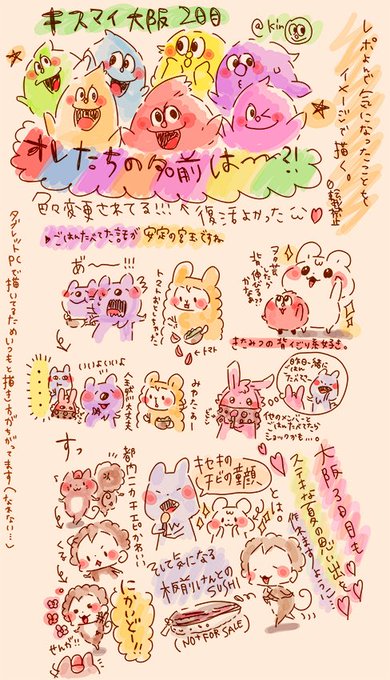 キスマイ大阪2日目
@kin
レポよんで気になったことを
イメージで描く。
オレたちの名前は〜〜?!
色々変更されてる!!!
復活よかった
♥
ごはんたべてた話が
安定の宮玉ですね
あ〜〜!!!
トマトおとしちゃった
トマト
きたみつの背イジり系好き。
いいよいいよ
人生経験大丈夫
みやたぁー
昨日一緒に
ごはん
たべた〜
他のメンバーと
ごはんたべてたら
ショックかも…。
タブレットPCで描いてるためいつもと描き方がちがってます(なれない…)
すっ
都内一カチエビかわいい
キセキの
チビの童顔
とは。
大阪3日目も
ステキな夏の思い出を
作れますように…
そして気になる
大阪前リさんとの
SUSHI
(NOT FOR SALE)
にかいどー!!
せんが!!